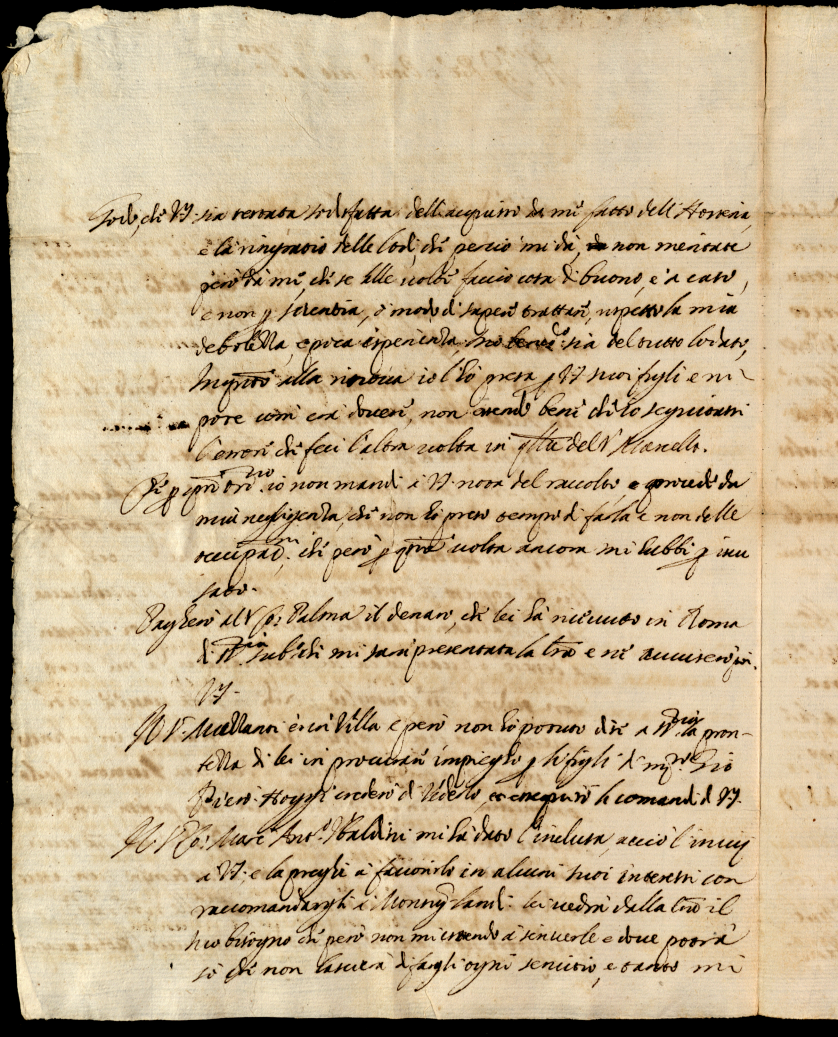 Godo, che VS. sia restata sodisfatta dell'acquisto da me fatto dell'Hosteria,
e la ringratio delle lodi, che percio mi dà, non meritate
però da me, che se alle volte faccio cosa di buono, è a caso,
e non p scientia, ò modo di saper trattare, rispetto la mia
debolezza, e poca esperienza, sia del tutto lodato,
alla io l'hò presa p VS suoi figli e ni-
pote come era dovere, non essendo bene che io seguitassi
l'errore che feci l'altra volta in qlla del S.r
Se p io non mandi à VS. nota del raccolto, procede da
mia negligenza, che non hò preso tempo di farla e non delle
occupaõni. che però p qsta volta ancora mi habbi p iscu
sato.
Pagherò al S. Co: Palma il denaro, che lei hà ricevuto in Roma
di subito che mi sarà presentata la lrã e ne accuserò
VS.
Il S. è in Villa e però non hò potuto dire a la pron-
tezza di lei in procurare impiegho p li figli di Gio
Piero. Hoggi crederò di vederlo, et eseguirò li comandi di VS.
Il S. Co: Marc'Ant.o Ubaldini mi hà dato l'inclusa, acciò l'invij
a VS. e la preghi à favorirlo in alcuni suoi interessi con
raccomandargli à Monsig. lei vedrà dalla lrã il
suo bisogno che però non mi estendo à scriverle e dove potrà
sò che non lascierà di fargli ogni servitio, e tanto mi